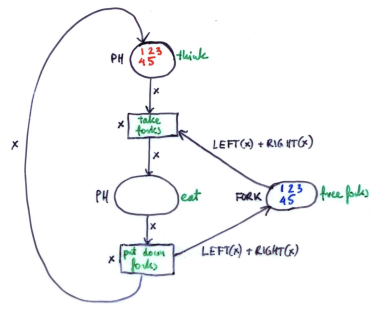 PH
1 2 3
4 5
think
x
x
take
forks
LEFT(x) + RIGHT(x)
x
x
PH
eat
FORK
1 2 3
4 5
free forks
x
x
put down
forks
LEFT(x) + RIGHT(x)